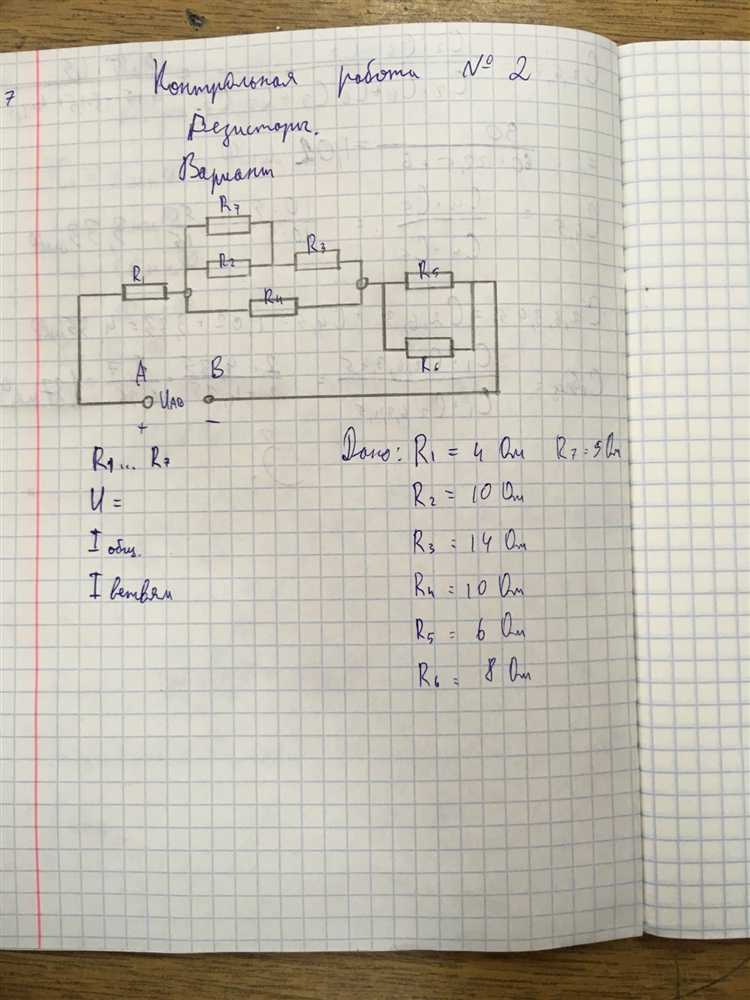 7
Контрольная работа № 2
Резисторы.
Вариант
R7
R2
R3
R1
R4
R5
R6
A
B
UAB
+
−
R1... R7
U =
I общ.
I ветвям
Дано: R1 = 4 Ом R7 = 5 Ом
R2 = 10 Ом
R3 = 14 Ом
R4 = 10 Ом
R5 = 6 Ом
R6 = 8 Ом